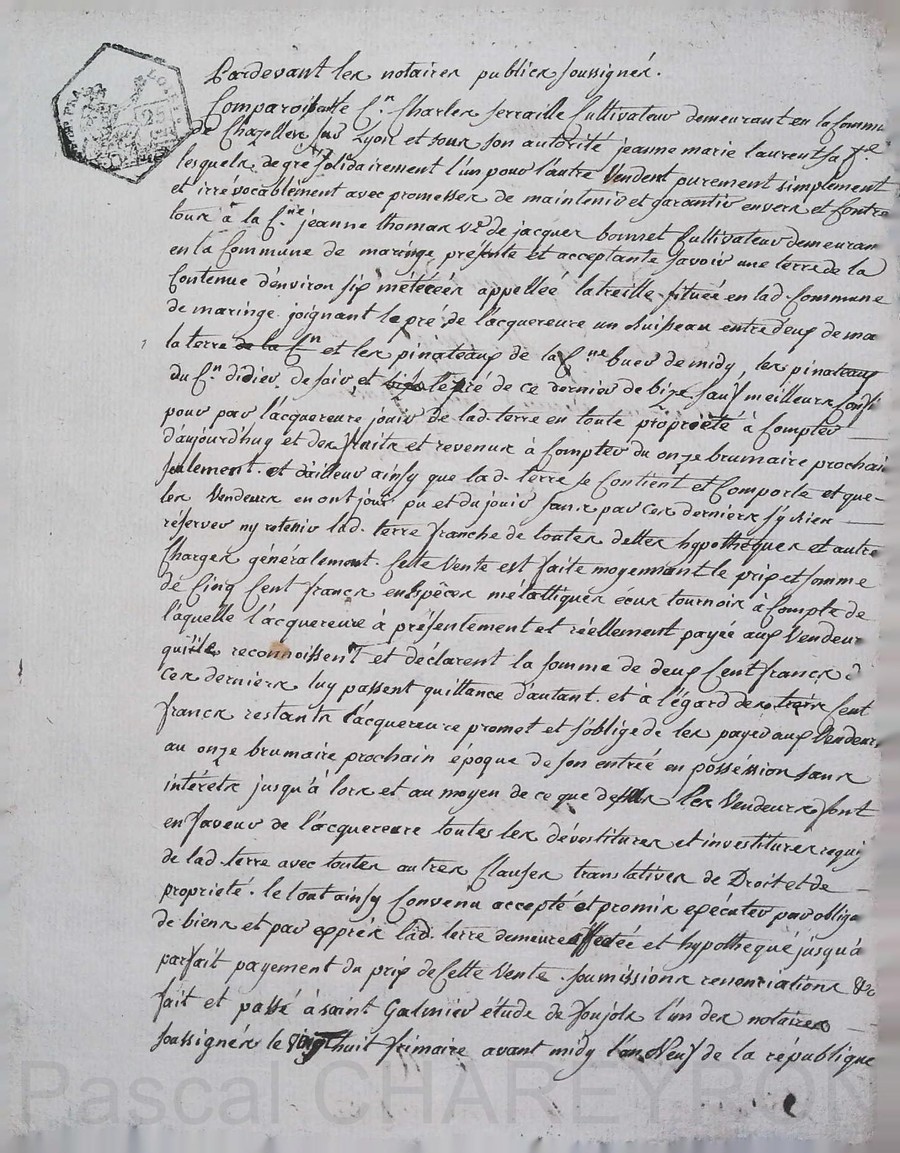 Pardevant les notaires publics soussignés.
Comparoissoit le C.n Charles ferraille Cultivateur demeurant en la Commu
de Chazelles sur Lyon et sous son autorité jeanne marie laurent sa f.e
lesquels de gré solidairement l'un pour l'autre Vendent purement simplement
et irrévocablement avec promesses de maintenir et garantir envers et contre
tous à la C.ne jeanne thomas v.e de jacques bonnet Cultivateur demeuran
en la Commune de maringe présente et acceptante savoir une terre de la
Contenue d'environ six métérées appellée latreille située en lad. Commune
de maringe joignant le pré de l'acquereure un ruisseau entre deux de ma
la terre de la C.n et les pinateaux de la C.ne de midy, les pinateaux
du C.n didier de soir, et le pré de ce dernier de bize sauf meilleurs Confi
pour par l'acquereure jouir de lad. terre en toute propriété à Compter
d'aujourd'huy et des fruits et revenus à Compter du onze brumaire prochai
seulement. et d'ailleur ainsy que lad. terre se Contient et Comporte et que
les Vendeurs en ont joui pu et du jouir sans par ces derniers s'y rien
réserver ny retenir lad. terre franche de toutes dettes hypothèques et autre
Charges généralement. Cette Vente est faite moyennant le prix et somme
de Cinq Cent francs en Espèces métalliques ecus tournois à Compte de
l'aquelle l'acquereure à présentement et réellement payée aux Vendeur
qui le reconnoissent et déclarent la somme de deux Cent francs d
Ces derniers luy passent quittance d'autant. et a l'égard des trois Cent
francs restants l'acquereure promet et s'oblige de les payer aux Vendeurs
au onze brumaire prochain époque de son entrée en posséssion sans
intérets jusqu'à lors et au moyen de ce que dessus les Vendeurs font
en faveur de l'acquereure toutes les dévestitures et investitures requis
de lad. terre avec toutes autres Clauses translatives de Droit et de
propriété. le tout ainsy Convenu accepté et promis exécuter par obliga
de biens et par exprès lad. terre demeure affectée et hypothequé jusqu'à
parfait payement du prix de Cette Vente. soumissions renonciations &c
fait et passé à saint Galmier étude de foujols l'un des notaires
soussignés le Vingt huit frimaire avant midy l'an Neuf de la république
Pascal CHAREYRON